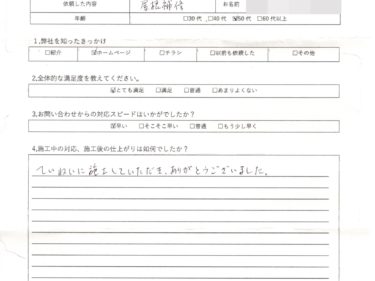 依頼した内容 屋根補修 お名前
年齢 □30代 ,□40代 ☑50代 □60代以上
1,弊社を知ったきっかけ
□紹介 ☑ホームページ □チラシ □以前も依頼した □その他
2,全体的な満足度を教えてください。
☑とても満足 □満足 □普通 □あまりよくない
3,お問い合わせからの対応スピードはいかがでしたか?
☑早い □そこそこ早い □普通 □もう少し早く
4,施工中の対応、施工後の仕上がりは如何でしたか?
ていねいに施工していただき、ありがとうございました。